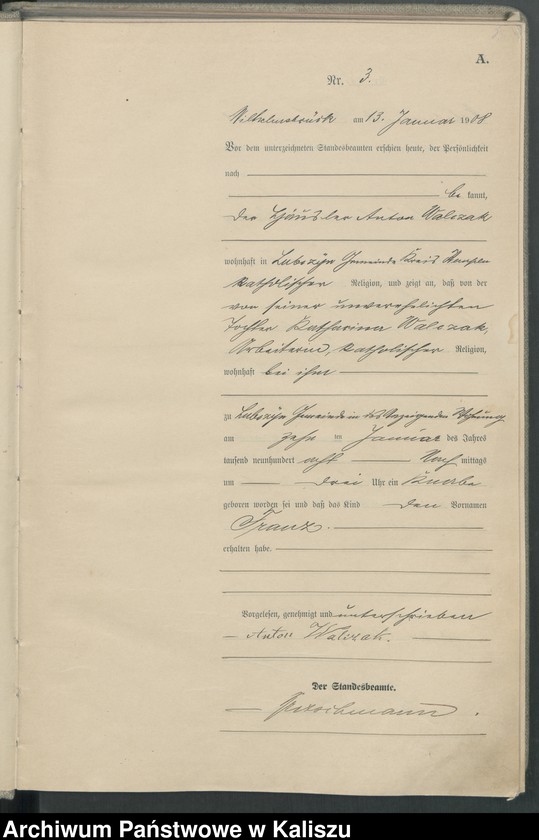 A.
Nr. 3.
Wilhelmsbrück am 13. Januar 1908
Vor dem unterzeichneten Standesbeamten erschien heute, der Persönlichkeit
nach
be kannt,
der Häusler Anton Walczak
wohnhaft in Lubczyn Gemeinde Kreis Kempen
katholischer Religion, und zeigt an, daß von der
von seiner unverehelichten
Tochter Katharina Walczak,
Arbeiterin, katholischer Religion,
wohnhaft bei ihm
zu Lubczyn Gemeinde in des Anzeigenden Wohnung
am zehn ten Januar des Jahres
tausend neunhundert acht Nach mittags
um drei Uhr ein Knabe
geboren worden sei und daß das Kind den Vornamen
Franz.
erhalten habe.
Vorgelesen, genehmigt und unterschrieben
Anton Walczak.
Der Standesbeamte.
Archiwum Państwowe w Kaliszu